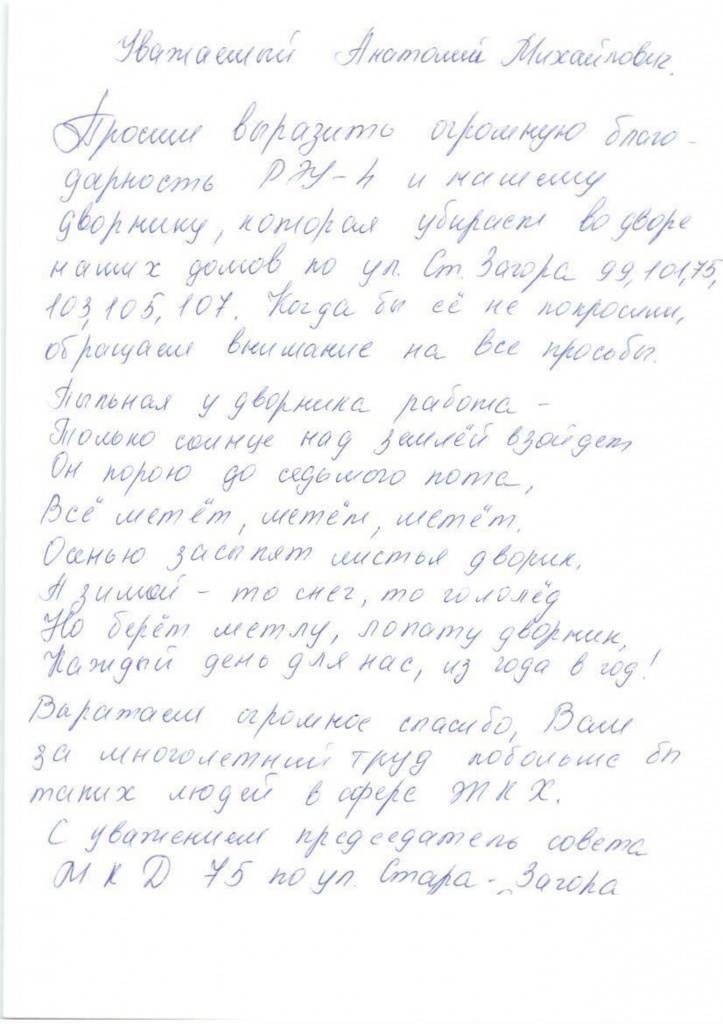 Уважаемый Анатолий Михайлович.
Просим выразить огромную благо-
дарность РЭУ-4 и нашему
дворнику, которая убирает во дворе
наших домов по ул. Ст. Загора 99, 101, 75,
103, 105, 107. Когда бы её не попросили,
обращаем внимание на все просьбы.
Пыльная у дворника работа –
Только солнце над землёй взойдет
Он порою до седьмого пота,
Всё метёт, метёт, метёт.
Осенью засыпят листья дворик,
А зимой – то снег, то гололёд
Но берёт метлу, лопату дворник,
Каждый день для нас, из года в год!
Выражаем огромное спасибо, Вам
за многолетний труд побольше бы
таких людей в сфере ЖКХ.
С уважением председатель совета
МКД 75 по ул. Стара-Загора